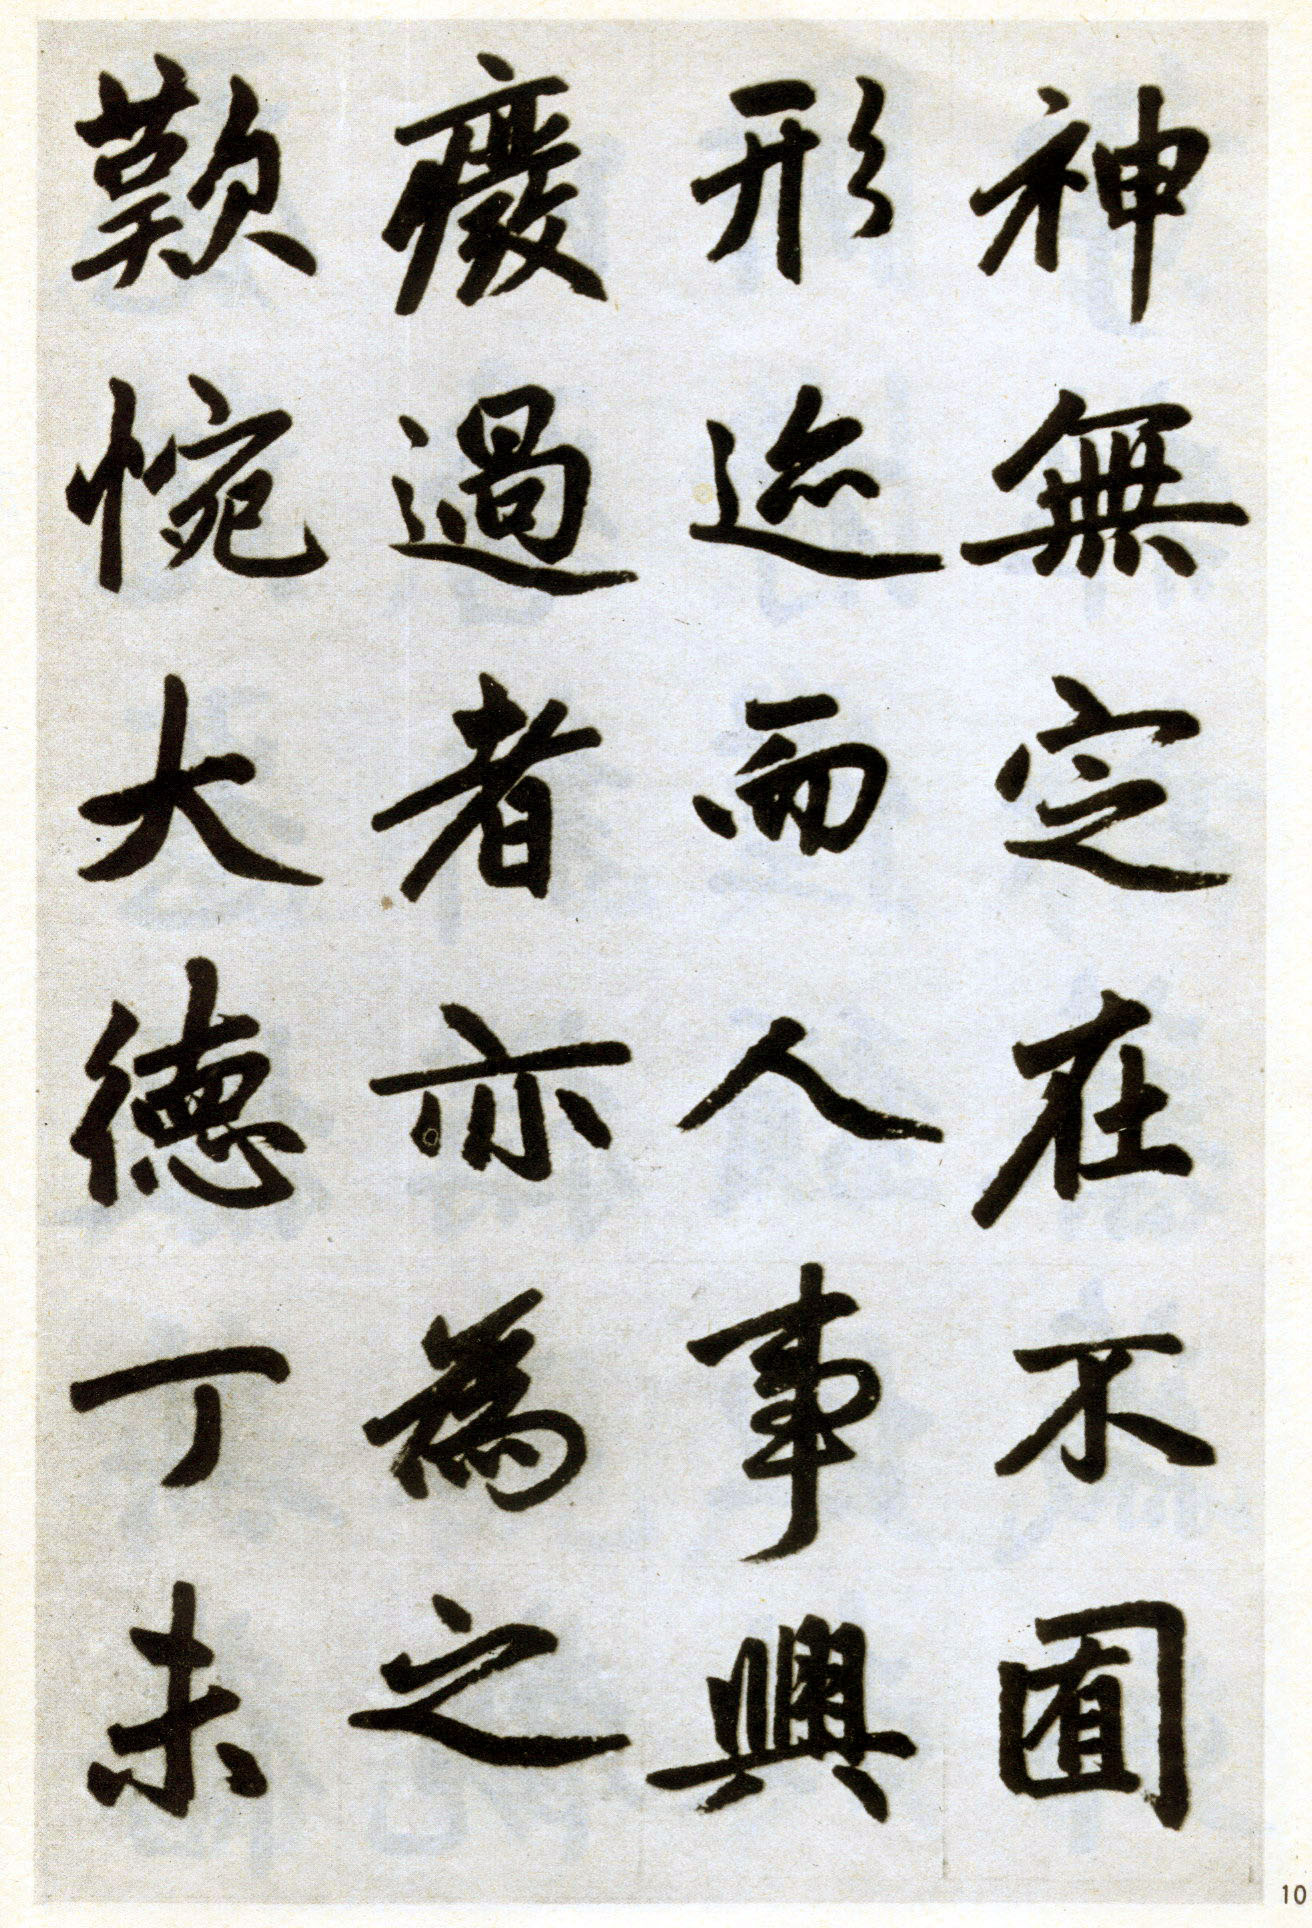 神無定在不囿
形迹而人事興
廢過者亦為之
歎惋大德丁未
10